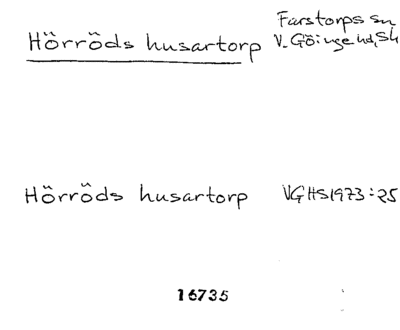 Hörröds husartorp Farstorps sn
V. Göinge hd, Sk
Hörröds husartorp VGHS1973:25
16735